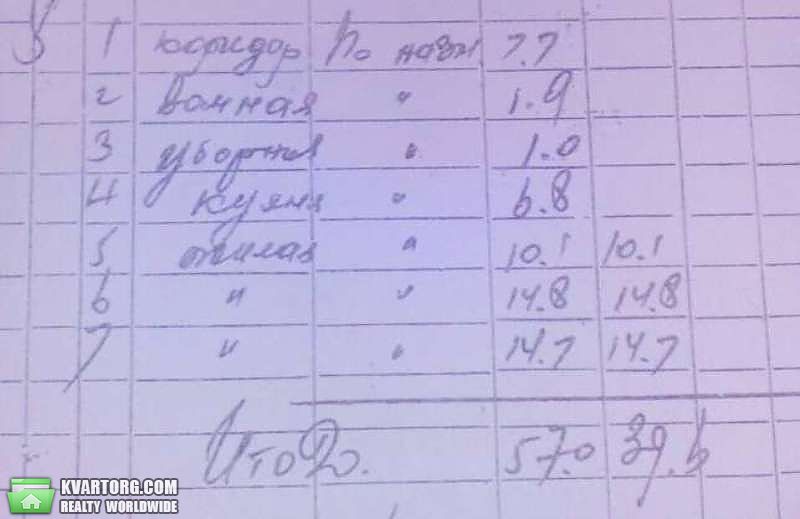 3 1 коридор По назн 7.7
2 Ванная " 1.9
3 уборная " 1.0
4 кухня " 6.8
5 жилая " 10.1 10.1
6 " " 14.8 14.8
7 " " 14.7 14.7
Итого. 57.0 39.6
KVARTORG.COM
REALTY WORLDWIDE